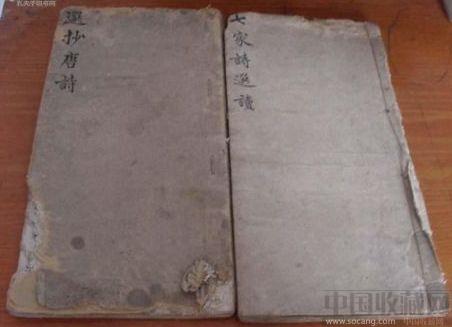 選抄唐詩
七家詩選讀
中国收藏网
www.socang.com 中国收藏网